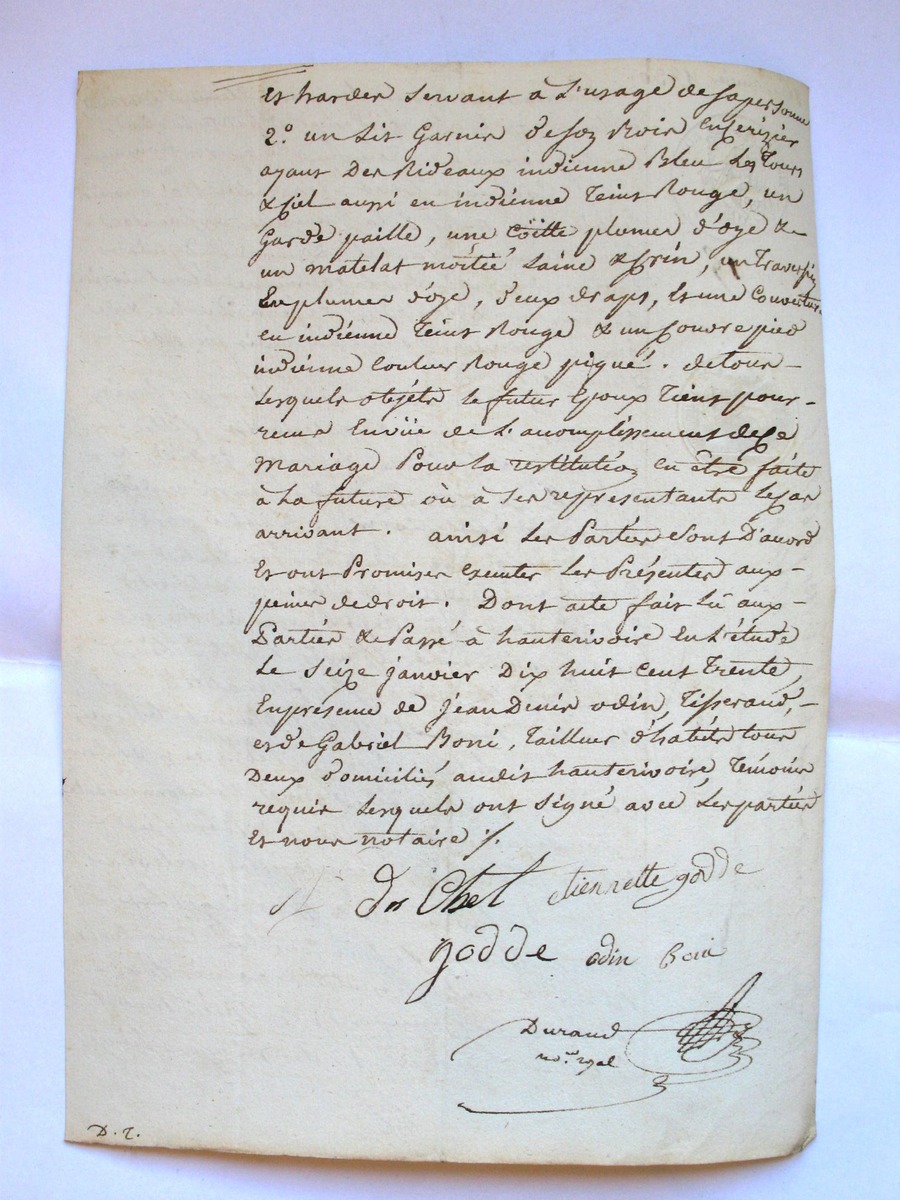 et hardes servant à L'usage de sa personne
2.° un Lit Garnir de son Bois en serizier
ayant Des Rideaux indienne Bleu Les Tours
& Ciel aussi en indiénne teint Rouge, un
Garde paille, une Coïtte plumes d'oye &
un matelat moitié Laine & Crin, un Traversin
En plumes d'oye, deux draps, Et une Couverture
en indiénne teint Rouge & un Couvre pied
indiénne Couleur Rouge piqué. de tous -
Lesquels objéts Le futur Epoux tient pour -
reçus En vüe de L'acomplissement de Ce
Mariage Pour La restitution en être faite
à La future où à Ses représentants Le Cas
arrivant. ainsi Les Parties Sont D'acord
Et ont Promises executer Les Présentes aux -
peines de droit. Dont acte fait Lû aux -
Parties & Passé à hauterivoire En L'étude
Le Seize janvier Dix huit Cent Trente,
En présence de jean Denis odin, Tisserand, -
et de Gabriel Boni, Tailleur d'habits tous
Deux domiciliés audit hauterivoire, Témoins
requis Lesquels ont Signé avec Les parties
Et nous notaire ./.
étiennette godde
godde odin Boni
Durand
no.re royal
D. T.